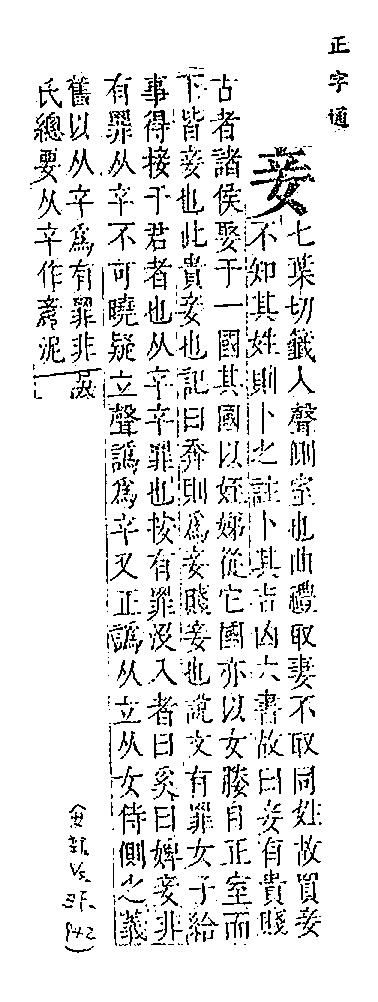 正字通
妾
七葉切籤入聲側室也曲禮取妻不取同姓故買妾
不知其姓則卜之註卜其吉凶六書故曰妾有貴賤
古者諸侯娶于一國其國以姪娣從它國亦以女媵自正室而
下皆妾也此貴妾也記曰奔則爲妾賤妾也說文有罪女子給
事得接于君者也从辛辛罪也按有罪没入者曰奚曰婢妾非
有罪从辛不可曉疑立聲譌爲辛又正譌从立从女侍側之義
舊以从辛爲有罪非
氏總要从辛作 泥